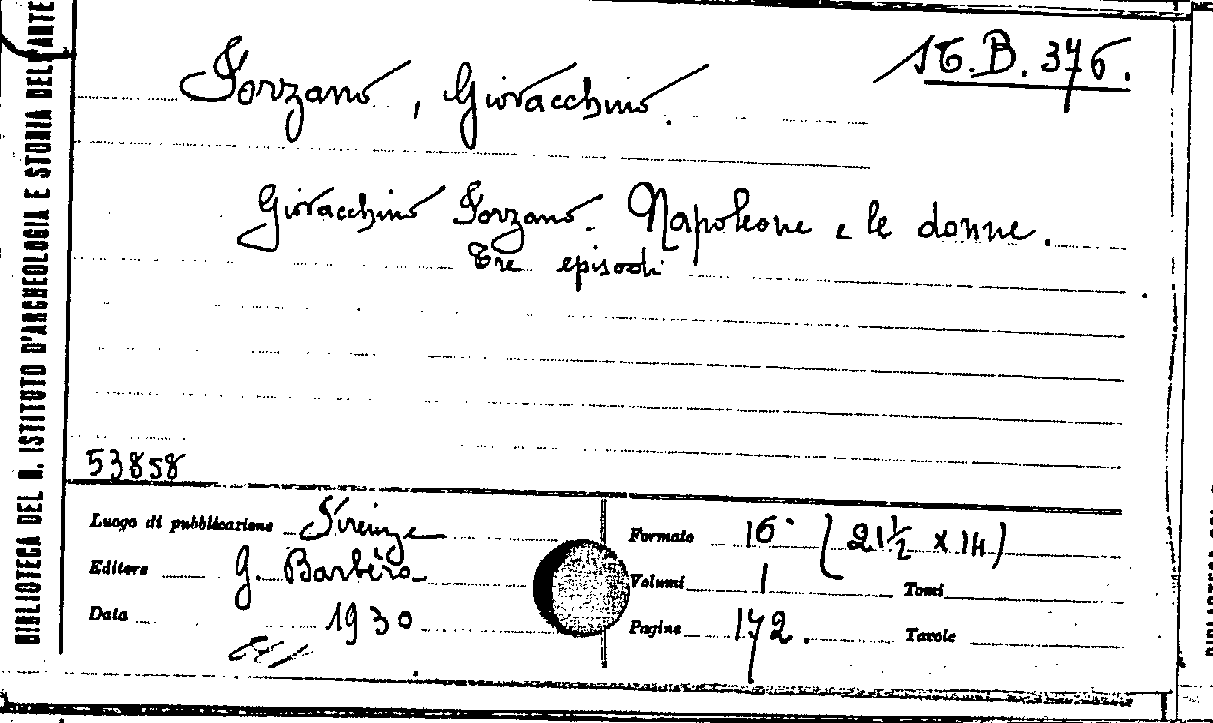 16.B.376.
Forzano, Giovacchino.
Giovacchino Forzano. Napoleone e le donne.
Tre episodi
53858
Luogo di pubblicazione Firenze
Editore G. Barbèra
Data 1930
Formato 16° (21½ x 14)
Volumi 1 Tomi
Pagine 172. Tavole
BIBLIOTECA DEL R. ISTITUTO D'ARCHEOLOGIA E STORIA DELL'ARTE